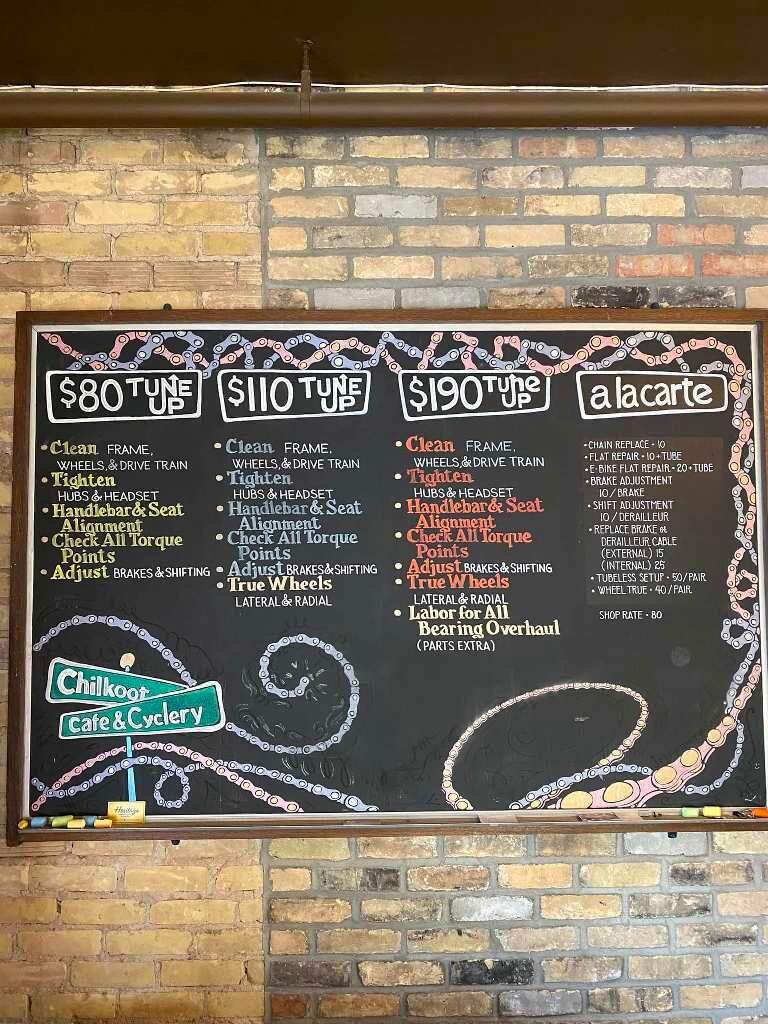 $80 TUNE UP
• Clean FRAME,
WHEELS, & DRIVE TRAIN
• Tighten
HUBS & HEADSET
• Handlebar & Seat
Alignment
• Check All Torque
Points
• Adjust BRAKES & SHIFTING
$110 TUNE UP
• Clean FRAME,
WHEELS, & DRIVE TRAIN
• Tighten
HUBS & HEADSET
• Handlebar & Seat
Alignment
• Check All Torque
Points
• Adjust BRAKES & SHIFTING
• True Wheels
LATERAL & RADIAL
$190 TUNE UP
• Clean FRAME,
WHEELS, & DRIVE TRAIN
• Tighten
HUBS & HEADSET
• Handlebar & Seat
Alignment
• Check All Torque
Points
• Adjust BRAKES & SHIFTING
• True Wheels
LATERAL & RADIAL
• Labor for All
Bearing Overhaul
(PARTS EXTRA)
a la carte
• CHAIN REPLACE • 10
• FLAT REPAIR • 10 + TUBE
• E-BIKE FLAT REPAIR • 20 + TUBE
• BRAKE ADJUSTMENT
10 / BRAKE
• SHIFT ADJUSTMENT
10 / DERAILLEUR
• REPLACE BRAKE or
DERAILLEUR CABLE
(EXTERNAL) 15
(INTERNAL) 25
• TUBELESS SETUP • 50 / PAIR
• WHEEL TRUE • 40 / PAIR
SHOP RATE • 80
Chilkoot
cafe & Cyclery